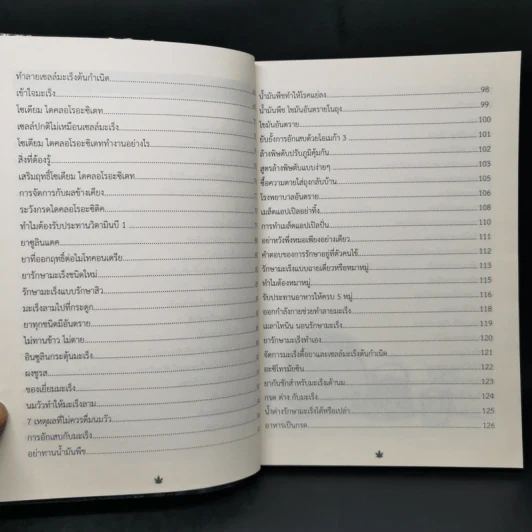 ทำลายเซลล์มะเร็งต้นกำเนิด
เข้าใจมะเร็ง
โซเดียม ไดคลอโรอะซิเตท
เซลล์ปกติไม่เหมือนเซลล์มะเร็ง
โซเดียม ไดคลอโรอะซิเตททำงานอย่างไร
สิ่งที่ต้องรู้
เสริมฤทธิ์โซเดียม ไดคลอโรอะซิเตท
การจัดการกับผลข้างเคียง
ระวังกรดไดคลอโรอะซิติค
ทำไมต้องรับประทานวิตามินบี 1
ยาซูลินแดค
ยาที่ออกฤทธิ์ต่อไมโทคอนเดรีย
ยารักษามะเร็งชนิดใหม่
รักษามะเร็งแบบรักษาสิว
มะเร็งลามไปที่กระดูก
ยาทุกชนิดมีอันตราย
ไม่ทานข้าว ไม่ตาย
อินซูลินกระตุ้นมะเร็ง
ผงชูรส
ของเยี่ยมมะเร็ง
นมวัวทำให้มะเร็งลาม
7 เหตุผลที่ไม่ควรดื่มนมวัว
การอักเสบกับมะเร็ง
อย่าทานน้ำมันพืช
น้ำมันพืชทำให้โรคแย่ลง 98
น้ำมันพืช ไขมันอันตรายในถุง 99
ไขมันอันตราย 100
ยับยั้งการอักเสบด้วยโอเมก้า 3 101
ล้างพิษตับปรับภูมิคุ้มกัน 102
สูตรล้างพิษตับแบบง่ายๆ 103
ซื้อความตายใส่ถุงกลับบ้าน 105
โรงพยาบาลอันตราย 106
เมล็ดแอปเปิลอย่าทิ้ง 108
การทำเมล็ดแอปเปิลปั่น 110
อย่าหวังพึ่งหมอเพียงอย่างเดียว 111
คำตอบของการรักษาอยู่ที่ตัวคนไข้ 112
รักษามะเร็งแบบฉายเดี่ยวหรือหมาหมู่ 113
ทำไมต้องหมาหมู่ 115
รับประทานอาหารให้ครบ 5 หมู่ 116
ออกกำลังกายช่วยทำลายมะเร็ง 118
เมลาโทนิน นอนรักษามะเร็ง 119
ยารักษามะเร็งทำเอง 120
จัดการมะเร็งดื้อยาและเซลล์มะเร็งต้นกำเนิด 121
อะซิโทรมัยซิน 122
ยากันชักสำหรับมะเร็งเต้านม 123
กรด ด่าง กับมะเร็ง 124
น้ำด่างรักษามะเร็งได้หรือเปล่า 125
อาหารเป็นกรด 126